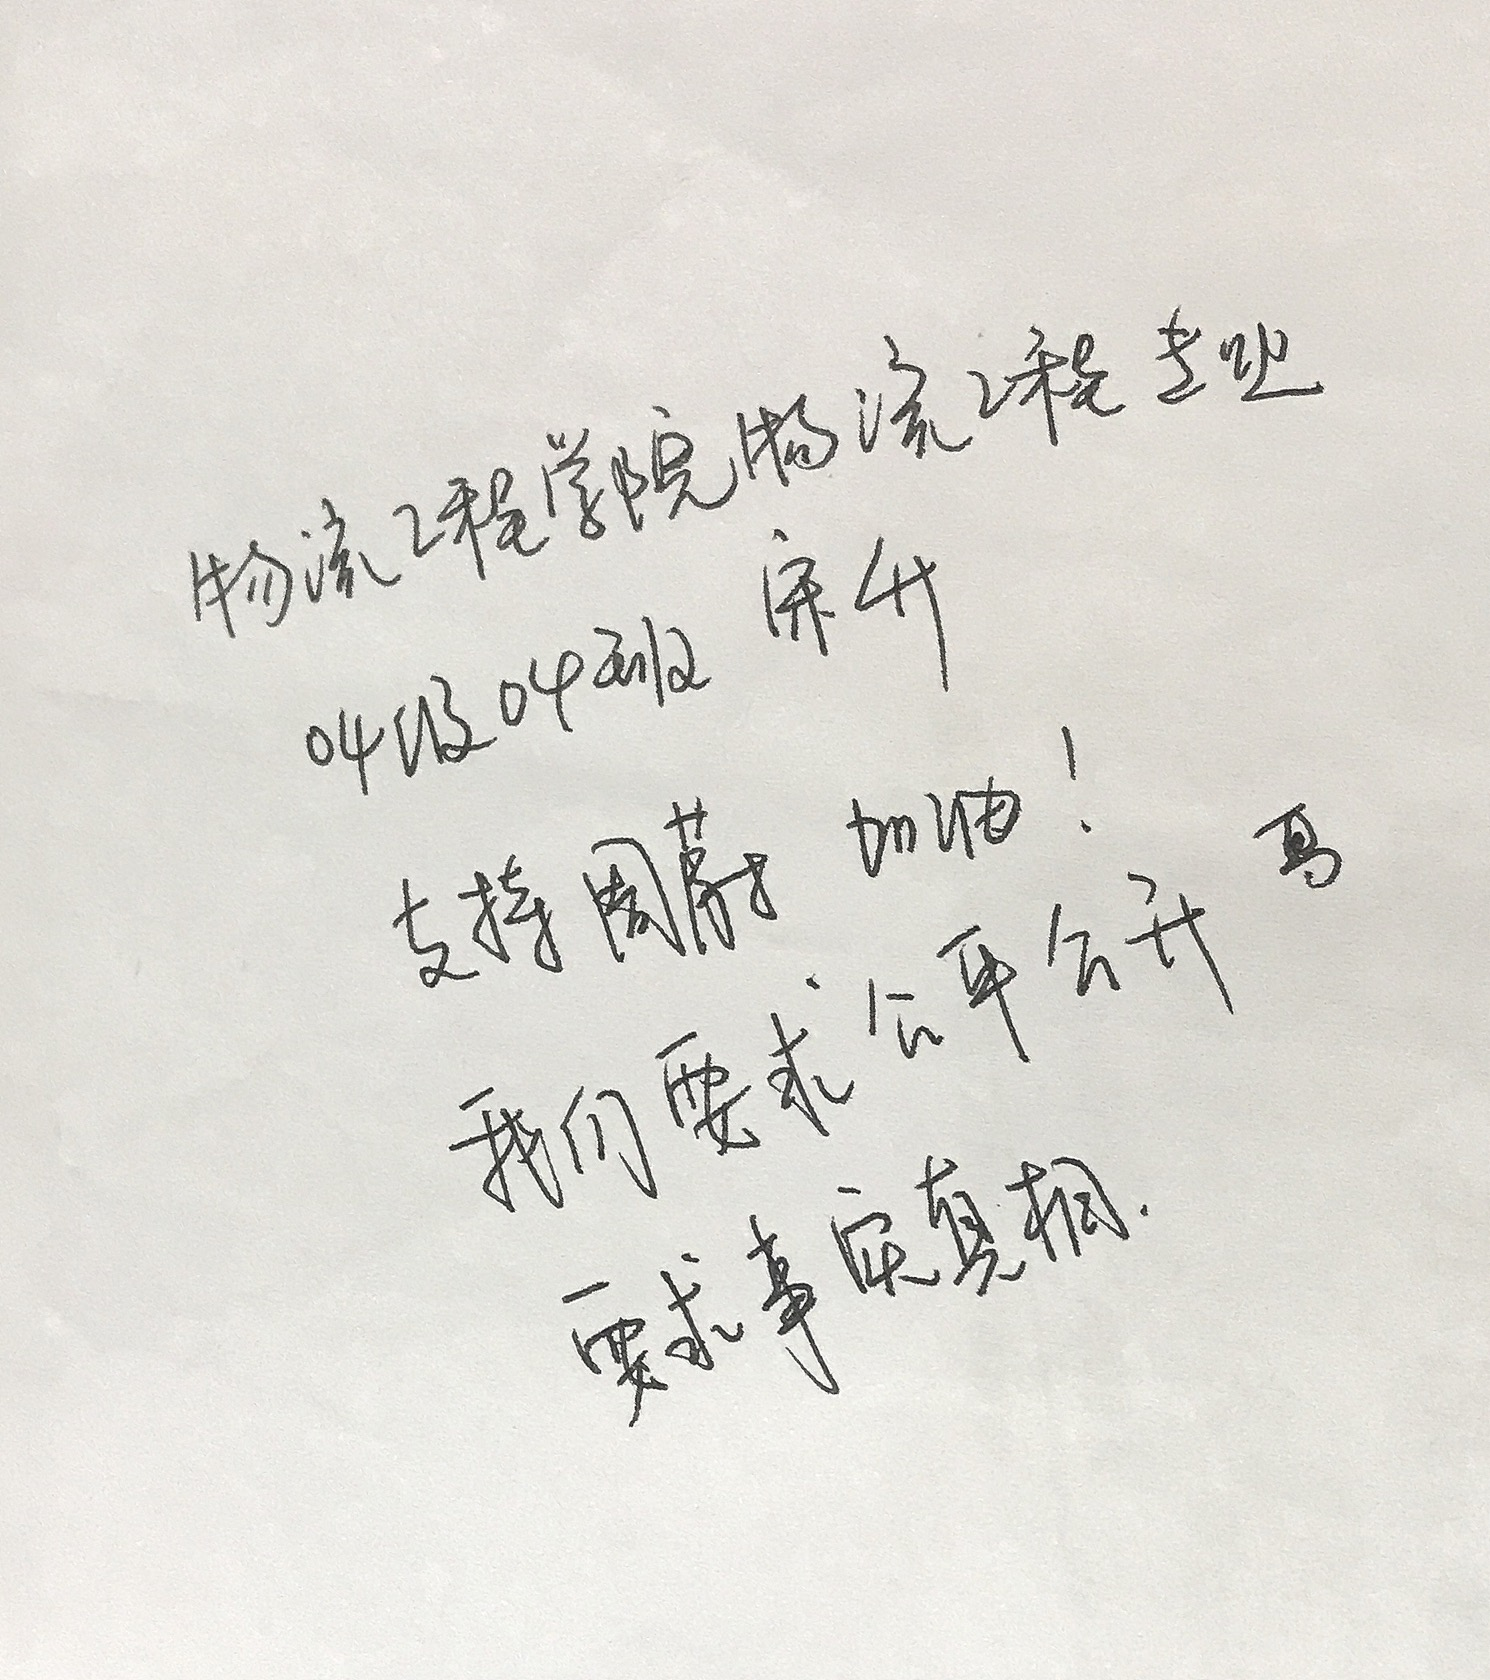 物流工程学院物流工程专业
04级04班 宋升
支持周蔚 加油!
我们要求公平公开
要求事实真相.